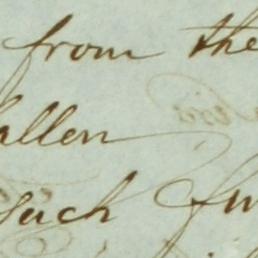 from the
allen
such